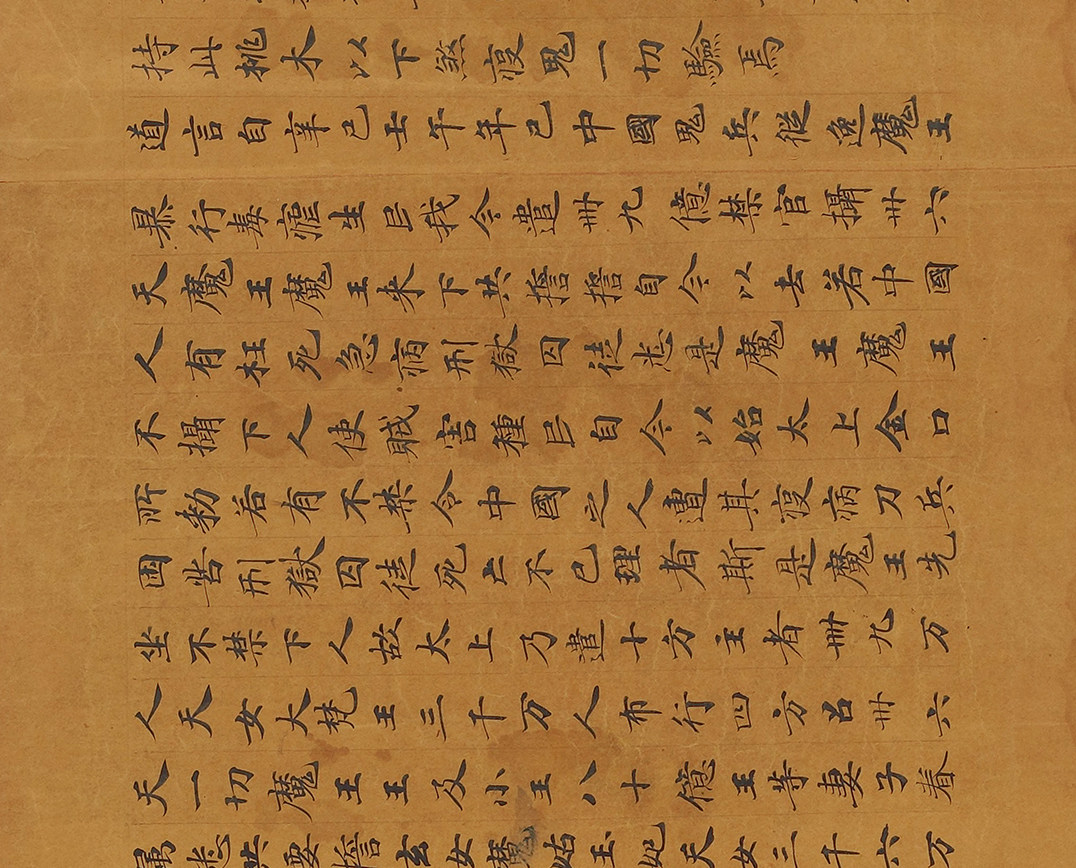 持此桃木以下煞疫鬼一切驗焉
道言自辛巳壬午年已中國鬼兵從逸魔王
暴行毒瘧生民我今遣卌九億禁官攝卅六
天魔王魔王来下共誓誓自今以去若中國
人有枉死急病刑獄囚徒悉是魔王魔王
不攝下人使賊害種民自今以始太上金口
所勑若有不禁令中國之人遭其疫病刀兵
困苦刑獄囚徒死亡不已理者斯是魔王先
坐不禁下人故太上乃遣十方主者卌九万
人天女大梵王三千万人布行四方召卅六
天一切魔王王及小王八十億王等妻子眷
属悉共要誓玄女魔姑玉妃天女三千六万